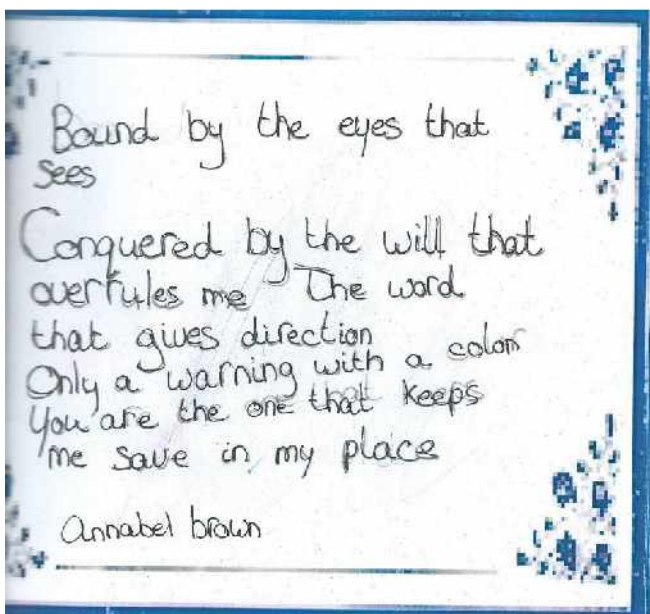 Bound by the eyes that
sees
Conquered by the will that
overrules me The word
that gives direction
Only a warning with a color
You are the one that keeps
me save in my place
Annabel brown